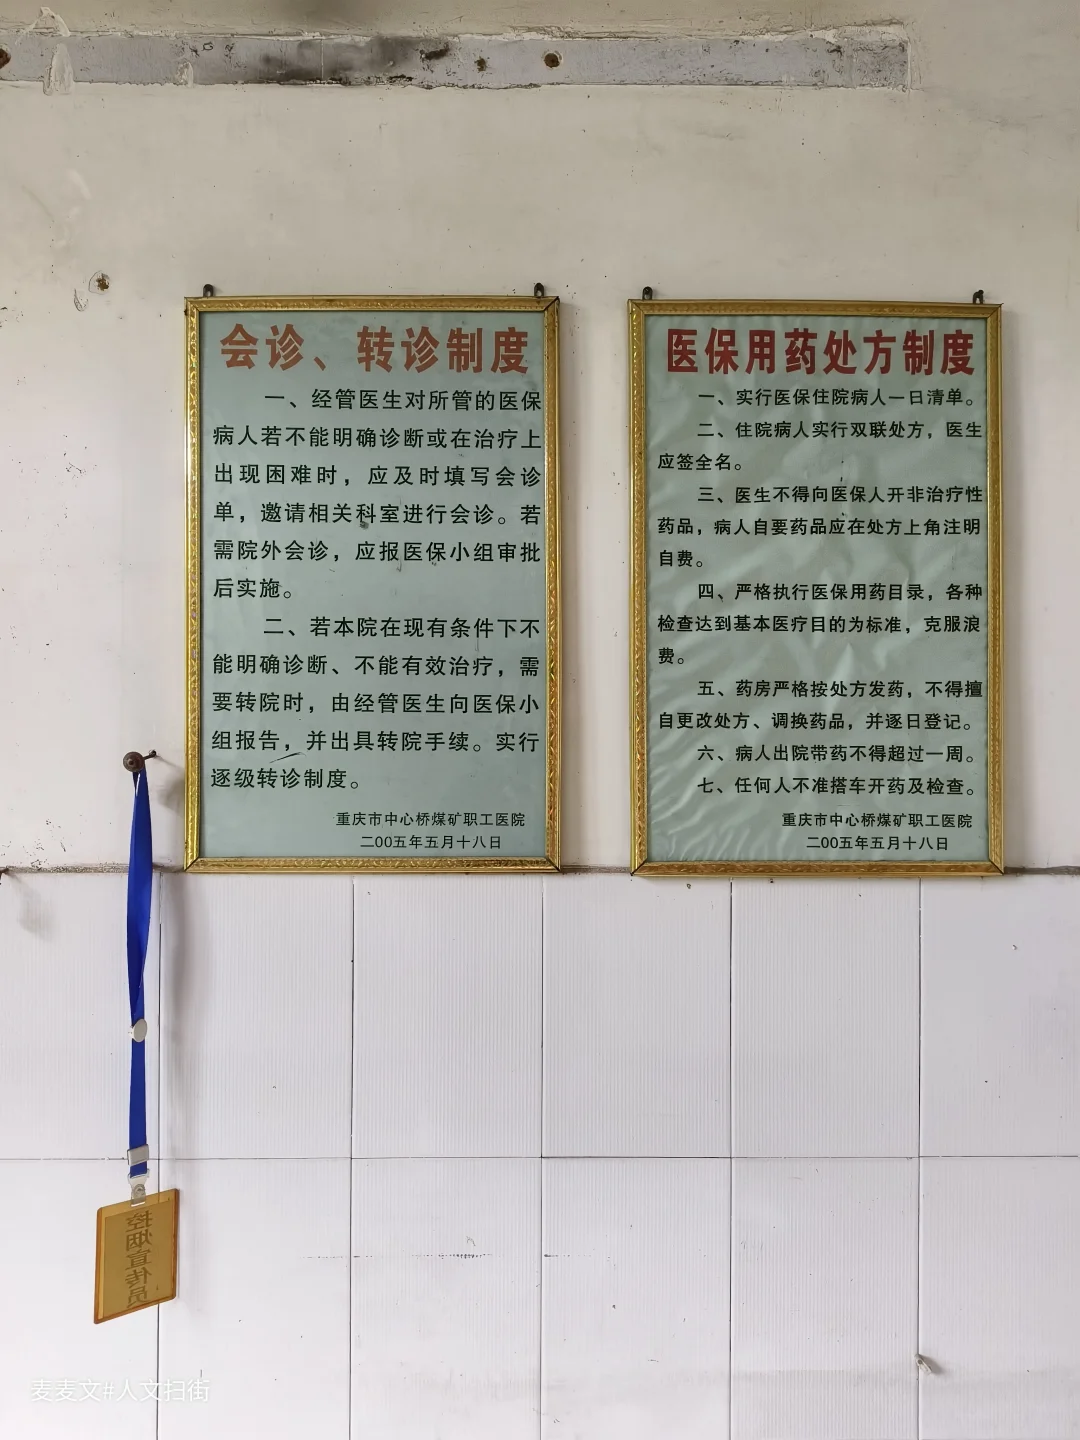 会诊、转诊制度
一、经管医生对所管的医保
病人若不能明确诊断或在治疗上
出现困难时，应及时填写会诊
单，邀请相关科室进行会诊。若
需院外会诊，应报医保小组审批
后实施。
二、若本院在现有条件下不
能明确诊断、不能有效治疗，需
要转院时，由经管医生向医保小
组报告，并出具转院手续。实行
逐级转诊制度。
重庆市中心桥煤矿职工医院
二00五年五月十八日
医保用药处方制度
一、实行医保住院病人一日清单。
二、住院病人实行双联处方，医生
应签全名。
三、医生不得向医保人开非治疗性
药品，病人自要药品应在处方上角注明
自费。
四、严格执行医保用药目录，各种
检查达到基本医疗目的为标准，克服浪
费。
五、药房严格按处方发药，不得擅
自更改处方、调换药品，并逐日登记。
六、病人出院带药不得超过一周。
七、任何人不准搭车开药及检查。
重庆市中心桥煤矿职工医院
二00五年五月十八日
控烟宣传员
麦麦文#人文扫街